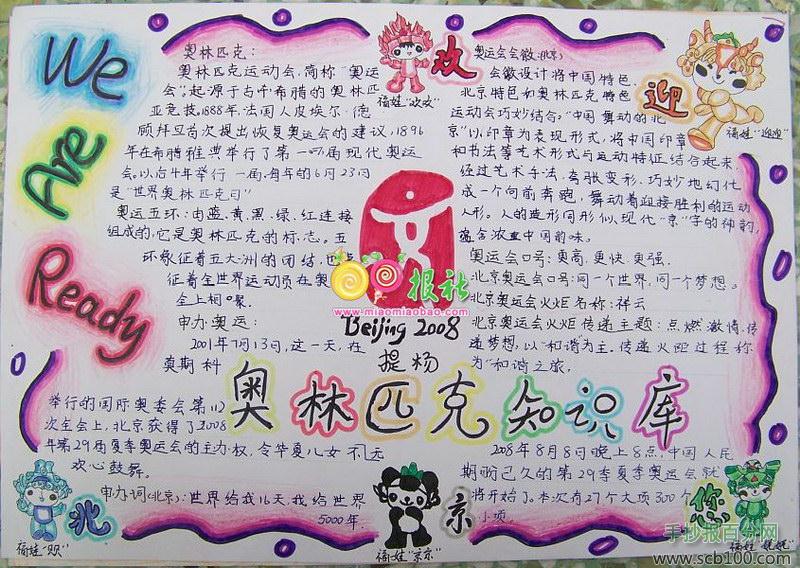 We
Are
Ready
奥林匹克：
奥林匹克运动会，简称“奥运
会”，起源于古希腊的奥林匹
亚竞技。1888年，法国人皮埃尔·德
顾拜旦首次提出恢复奥运会的建议，1896
年在希腊雅典举行了第一届现代奥运
会。以后4年举行一届，每年的6月23日
是“世界奥林匹克日”
奥运五环：由蓝、黄、黑、绿、红连接
组成的，它是奥林匹克的标志。五
环象征着五大洲的团结，也
征着全世界运动员在奥
会上相聚。
申办奥运：
2001年7月13日，这一天，在
莫斯科
举行的国际奥委会第112
次全会上，北京获得了2008
年第29届夏季奥运会的主办权，令华夏儿女
欢心鼓舞。
申办词(北京)：世界给我16天，我给世界
5000年
福娃“欢欢”
欢
迎
福娃“迎迎”
奥运会会徽：(北京)
会徽设计将中国特色
北京特色如奥林匹克特色
运动会巧妙结合。“中国舞动的北
京”以印章为表现形式，将中国印章
和书法等艺术形式与运动特征结合起来，
经过艺术手法，夸张变形、巧妙地幻化
成一个向前奔跑，舞动着迎接胜利的运动
人形。人的造形同形似现代“京”字的神韵，
蕴含浓重中国韵味。
奥运会口号：更高，更快，更强。
北京奥运会口号：同一个世界，同一个梦想。
北京奥运会火炬名称：祥云
北京奥运会火炬传递主题：点燃激情，传
递梦想，以“和谐为主。传递火炬过程称
为“和谐之旅，
报社
www.miaomiaobao.com
Beijing 2008
提杨
奥林匹克知识库
2008年8月8日晚上8点，中国人民
期盼已久的第29季夏季奥运会就
将开始了。本次有27个大项300个
小项。
兆
福娃“贝贝”
京
福娃“京京”
您
福娃“妮妮”
手抄报百分网
www.scb100.com